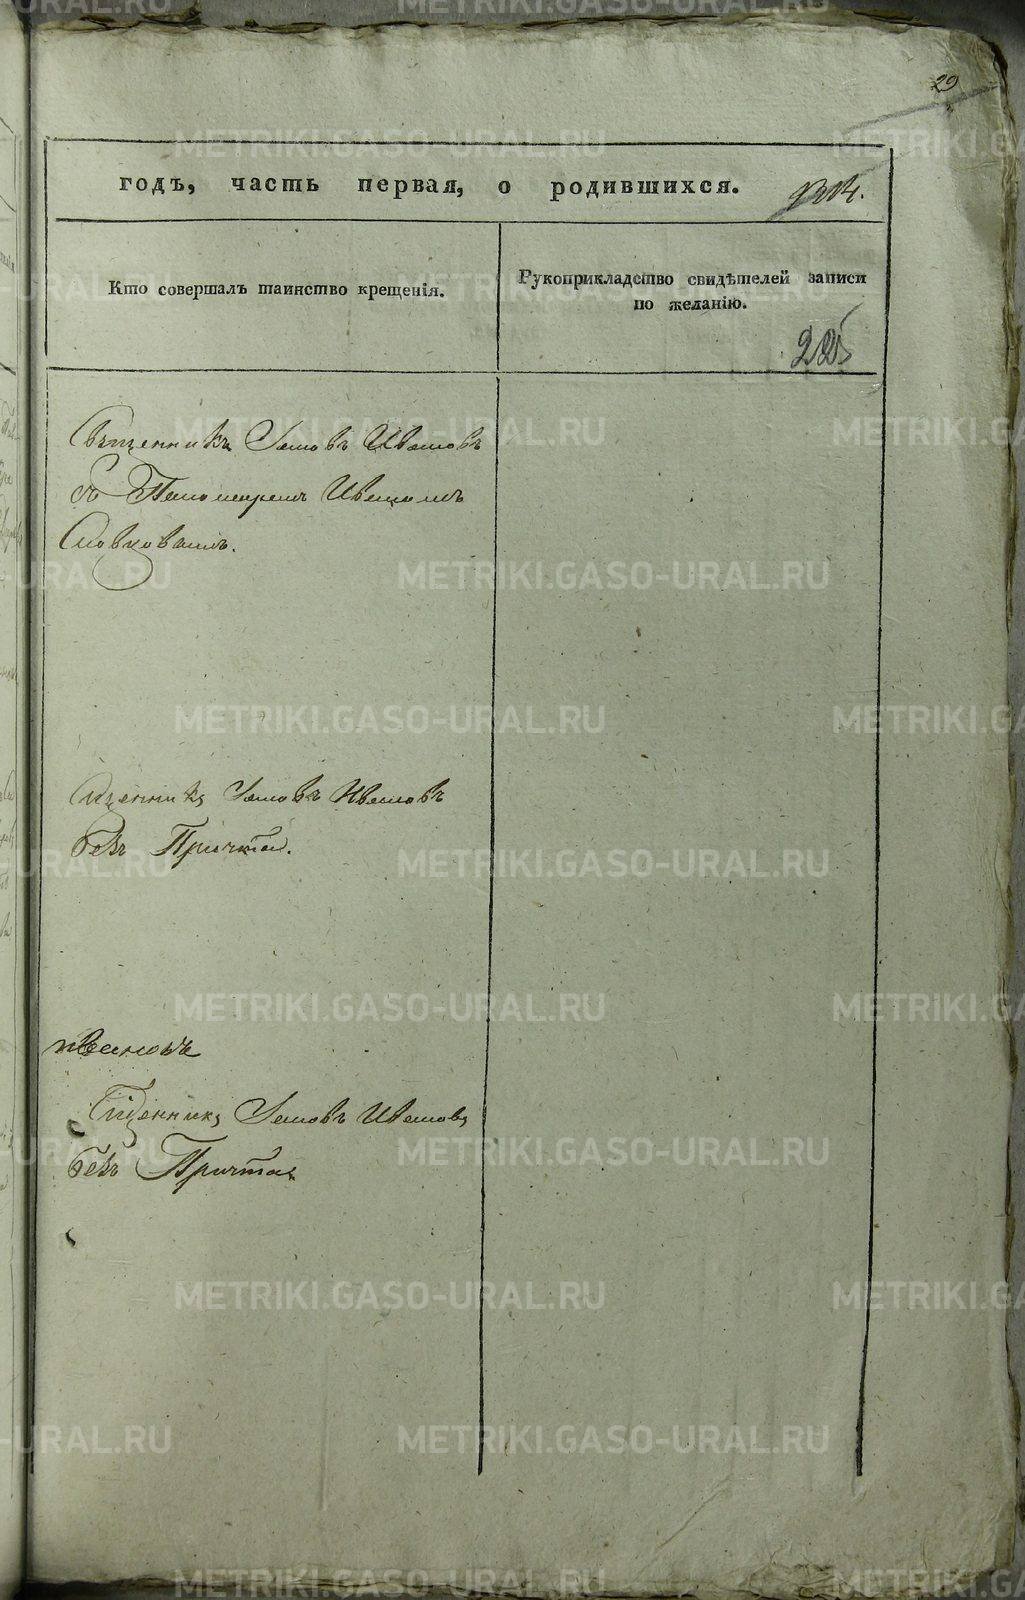 29
годъ, часть первая, о родившихся.
Кто совершалъ таинство крещенія.
Рукоприкладство свидѣтелей записи
по желанію.
225
Священникъ Іаковъ Ивановъ
съ Пономаремъ Иваномъ
Священникъ Іаковъ Ивановъ
безъ Причта.
Ивановъ
Священникъ Іаковъ Ивановъ
безъ Причта
METRIKI.GASO-URAL.RU